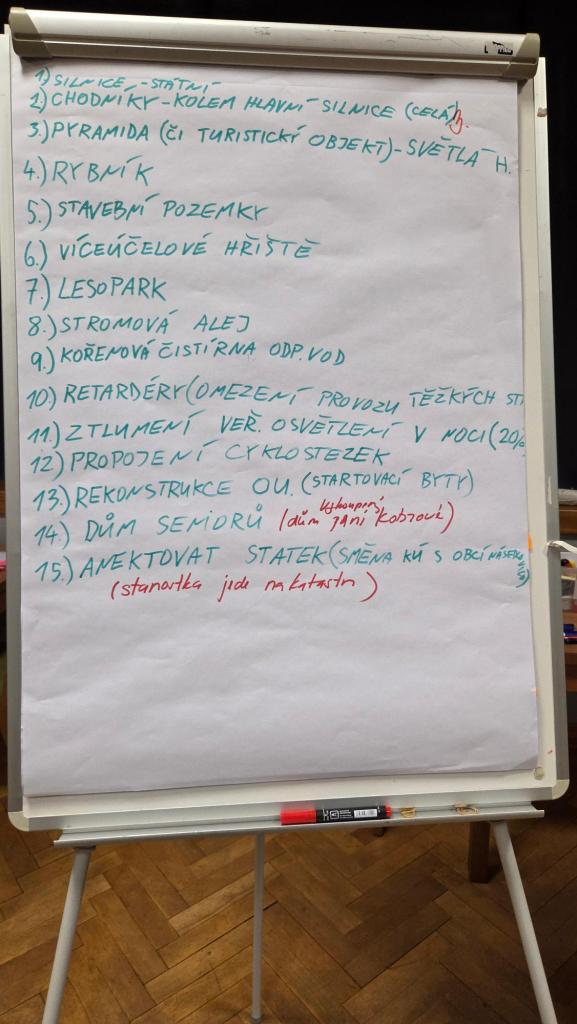 1.) SILNICE - STÁTNÍ
2.) CHODNÍKY - KOLEM HLAVNÍ SILNICE (CELÁ)
3.) PYRAMIDA (ČI TURISTICKÝ OBJEKT) - SVĚTLÁ H.
4.) RYBNÍK
5.) STAVEBNÍ POZEMKY
6.) VÍCEÚČELOVÉ HŘIŠTĚ
7.) LESOPARK
8.) STROMOVÁ ALEJ
9.) KOŘENOVÁ ČISTÍRNA ODP. VOD
10.) RETARDÉRY (OMEZENÍ PROVOZU TĚŽKÝCH
11.) ZTLUMENÍ VEŘ. OSVĚTLENÍ V NOCI (20%
12.) PROPOJENÍ CYKLOSTEZEK
13.) REKONSTRUKCE OU. (STARTOVACÍ BYTY)
14.) DŮM SENIORŮ (dům paní
15.) ANEKTOVAT STATEK (SMĚNA KÚ S OBCÍ
(starostka jede na katastr)